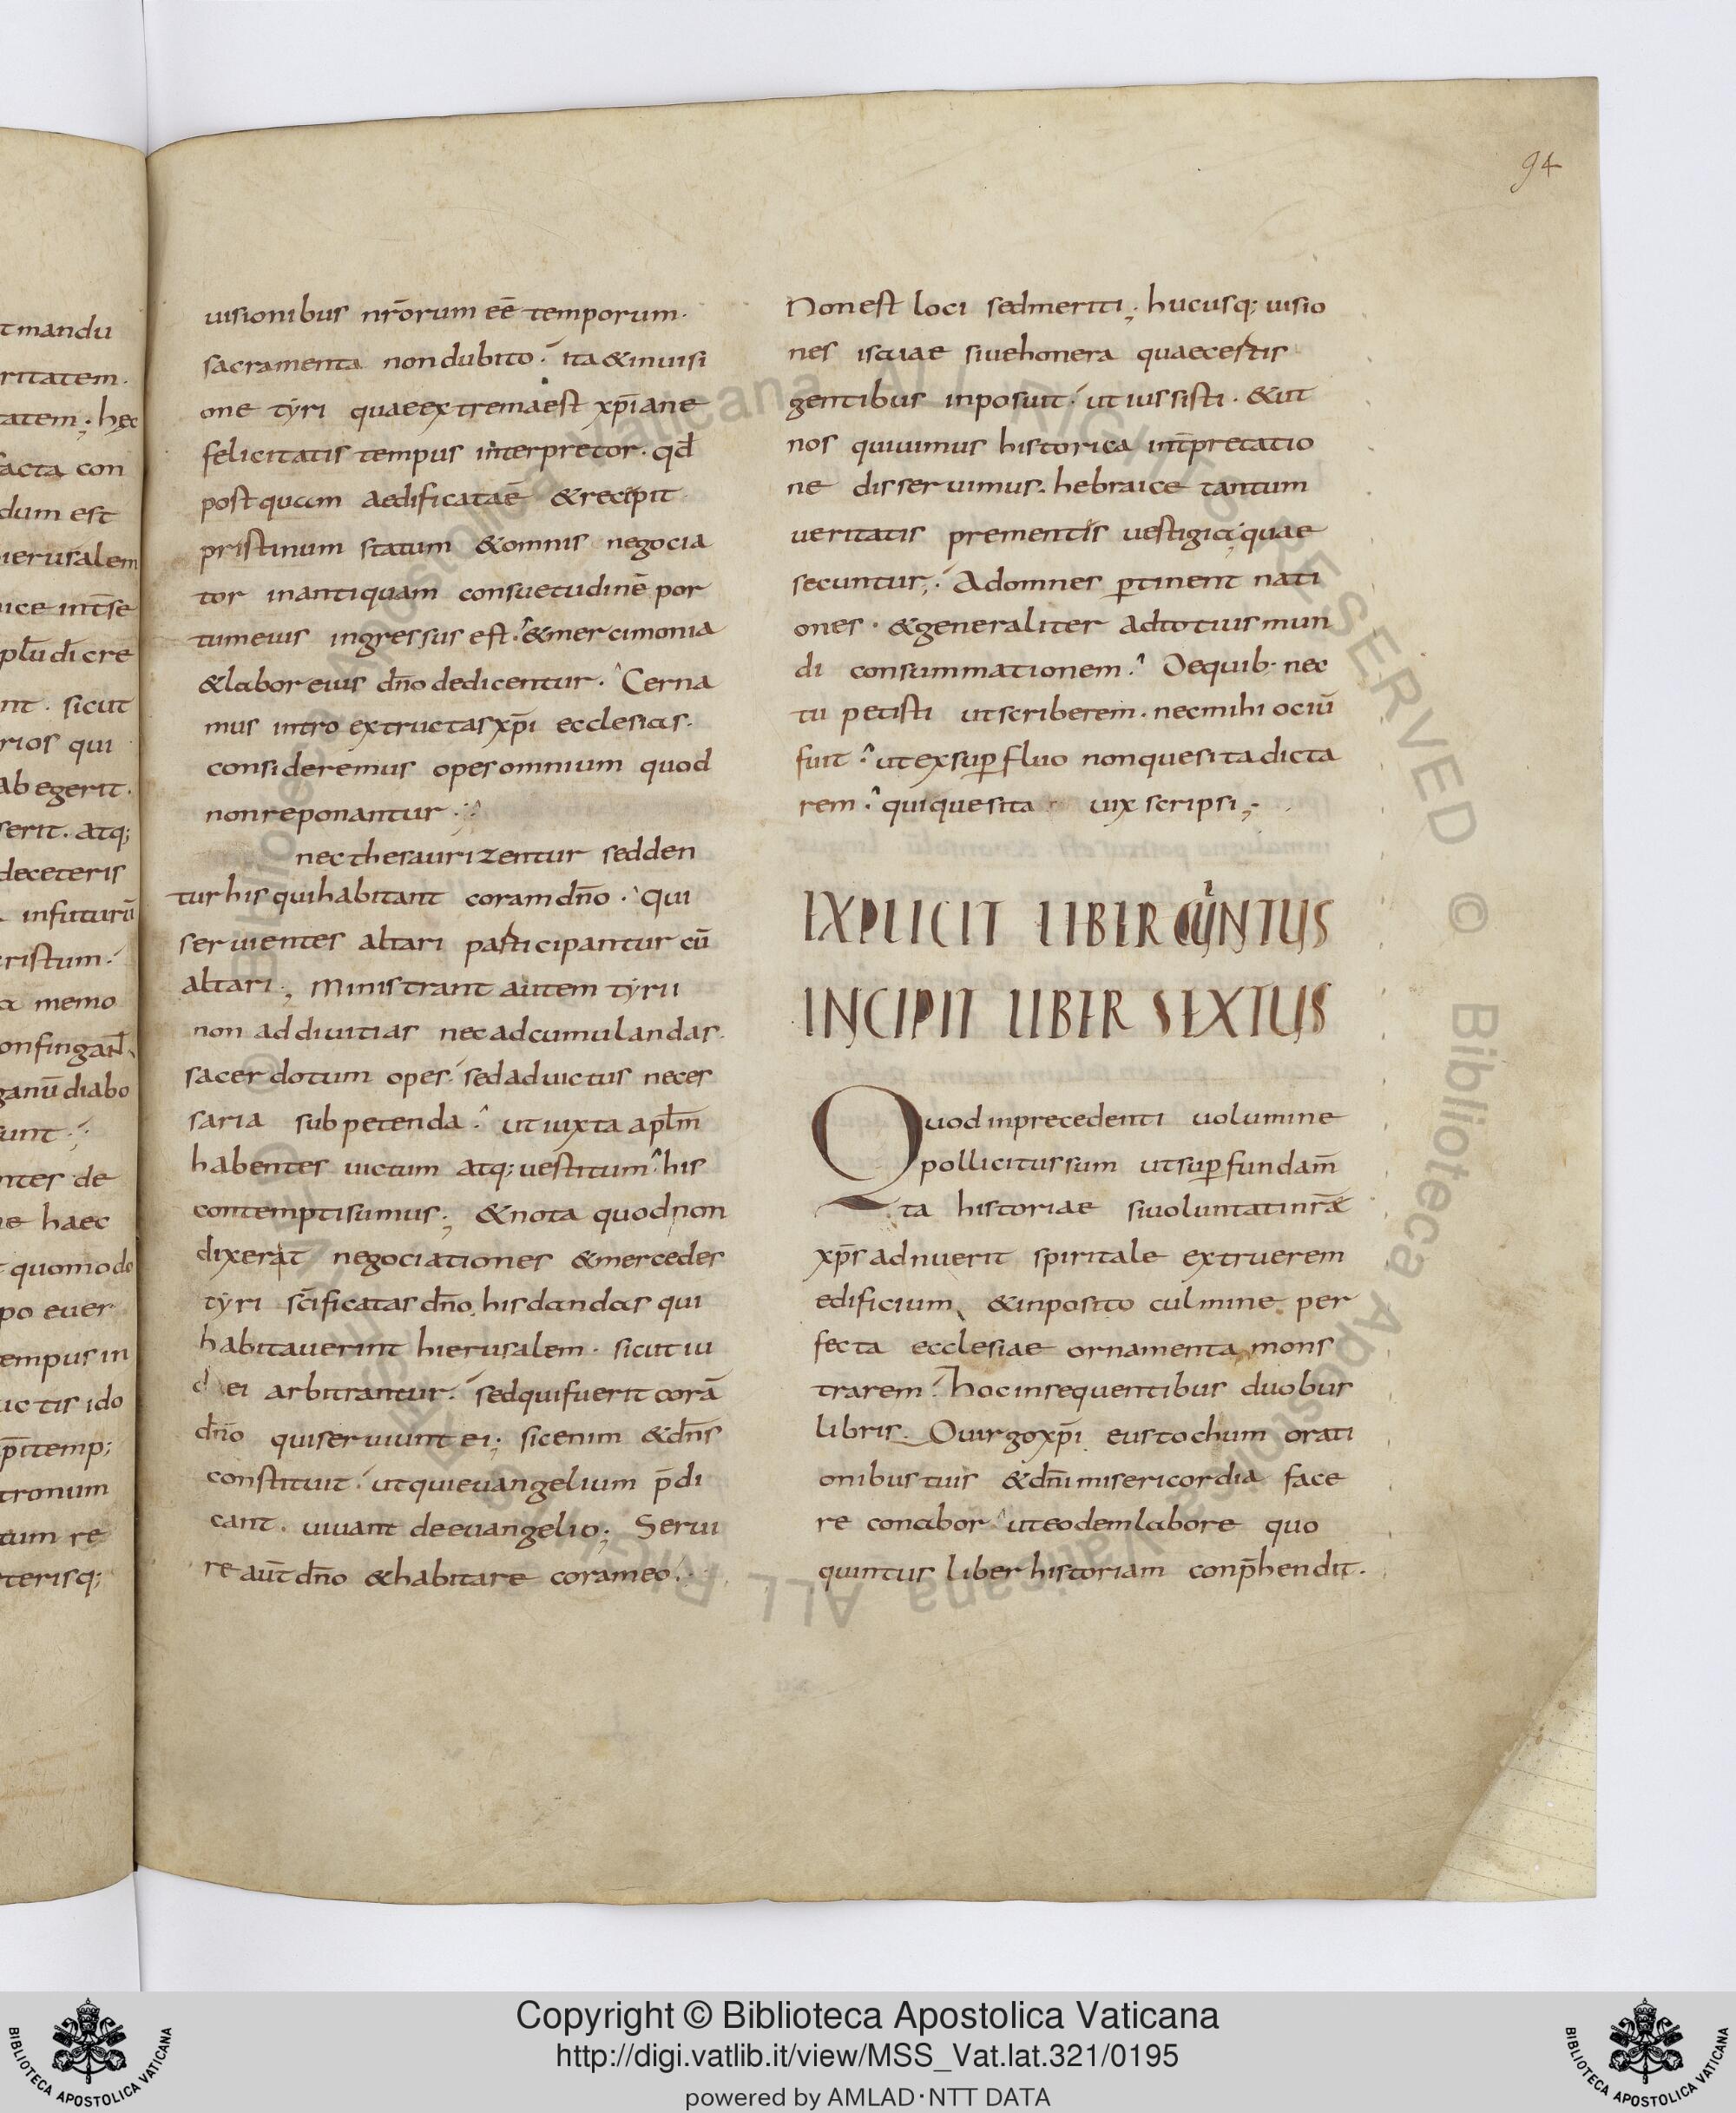 94
t mandu
ritatem.
tatem; hec
facta con
dum est
ierusalem
uice int̄se
pl̄u di cre
nt. sicut
rios qui
ab egerit.
serit. atq;
deceteris
infuturū
cristum.
a memo
onfingant
ganū diabo
sunt
nter de
ne haec
quomodo
po euer
tempus in
uctis ido
p̄itemp;
tronum
tum re
terisq;
uisionibus nr̄orum eē temporum.
sacramenta non dubito. ita & inuisi
one tyri quae extrema est xp̄iane
felicitatis tempus interpretor. qd̄
postquam aedificata ē & recipit
pristinum statum & omnis negocia
tor in antiquam consuetudinē por
tum eius ingressus est. & mercimonia
& labor eius dn̄o dedicentur. Cerna
mus intro extructas xp̄i ecclesias.
consideremus opes omnium quod
non reponantur.
nec thesaurizentur sed den
tur his qui habitant coram dn̄o. Qui
seruientes altari participantur cū
altari; Ministrant autem tyrii
non ad diuitias nec ad cumulandas.
sacerdotum opes. sed ad uictus neces
saria subpetenda. ut iuxta apl̄m
habentes uictum atq; uestitum his
contempti sumus; & nota quod non
dixerat negociationes & mercedes
tyri sc̄ificatas dn̄o. his dandas qui
habitauerint hierusalem. sicut iu
dei arbitrantur. sed qui fuerit corā
dn̄o qui seruiunt ei; sic enim & dn̄s
constituit. ut qui euangelium p̄di
cant. uiuant de euangelio; Serui
re aut̄ dn̄o & habitare cora meo.
Non est loci sed meriti; hucusq; uisio
nes isaiae siue honera quae cestis
gentibus inposuit. ut iussisti. & ut
nos quiuimus historica int̄pretatio
ne disseruimus. hebraice tantum
ueritatis prementis uestigia; quae
secuntur; Ad omnes ptinent nati
ones. & generaliter ad totius mun
di consummationem. De quib; nec
tu petisti ut scriberem. nec mihi ociū
fuit. ut ex sup fluo non quesita dicta
rem. qui quesita uix scripsi;
EXPLICIT LIBER QUINTUS
INCIPIT LIBER SEXTUS
Quod in precedenti uolumine
pollicitus sum ut sup fundam̄
ta historiae si uoluntati nr̄ae
xp̄s adnuerit spiritale extruerem
edificium, & inposito culmine. per
fecta ecclesiae ornamenta mons
trarem. hoc in sequentibus duobus
libris. O uirgo xp̄i eustochum orati
onibus tuis & dn̄i misericordia face
re conabor ut eodem labore quo
quintus liber historiam conp̄hendit.
Copyright © Biblioteca Apostolica Vaticana
http://digi.vatlib.it/view/MSS_Vat.lat.321/0195
powered by AMLAD·NTT DATA
BIBLIOTECA APOSTOLICA VATICANA
BIBLIOTECA APOSTOLICA VATICANA